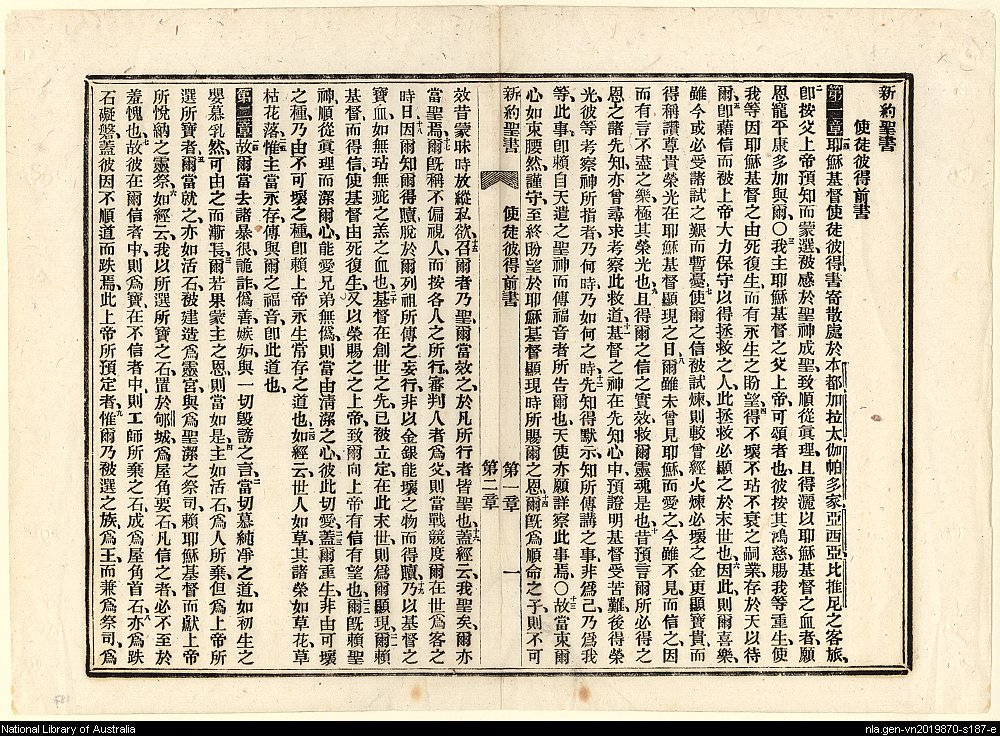 新約聖書
使徒彼得前書
第一章 耶穌基督使徒彼得、書寄散處於本都加拉太伽帕多家亞西亞比推尼之客旅、
卽按父上帝預知而蒙選、被感於聖神成聖、致順從眞理、且得灑以耶穌基督之血者、願
恩寵平康多加與爾、〇我主耶穌基督之父上帝可頌者也、彼按其鴻慈賜我等重生、使
我等因耶穌基督之由死復生而有永生之盼望、得不壞不玷不衰之嗣業、存於天以待
爾、卽藉信而被上帝大力保守以得拯救之人、此拯救必顯之於末世也、因此則爾喜樂、
雖今或必受諸試之艱而暫憂、使爾之信被試煉、則較曾經火煉必壞之金更顯寶貴、而
得稱讚尊貴榮光在耶穌基督顯現之日、爾雖未曾見耶穌、而愛之、今雖不見、而信之、因
而有言不盡之樂、極其榮光也、且得爾之信之實效、救爾靈魂是也、昔預言爾所必得之
恩之諸先知、亦曾尋求考察此救道、基督之神在先知心中、預證明基督受苦難後得榮
光、彼等考察神所指者、乃何時、乃如何之時、先知得默示、知所傳講之事、非爲己、乃爲我
等、此事卽賴自天遣之聖神而傳福音者所告爾也、天使亦願詳察此事焉、〇故當束爾
心如束腰然、謹守、至終盼望於耶穌基督顯現時所賜爾之恩、爾旣爲順命之子、則不可
新約聖書 使徒彼得前書 第一章 第二章 一
效昔蒙昧時放縱私欲、召爾者乃聖、爾當效之、於凡所行者皆聖也、蓋經云、我聖矣、爾亦
當聖焉、爾旣稱不偏視人、而按各人之所行審判人者爲父、則當戰競度爾在世爲客之
時日、因爾知爾得贖脫於爾列祖所傳之妄行、非以金銀能壞之物而得贖、乃以基督之
寶血、如無玷無疵之羔之血也、基督在創世之先已被立定、在此末世則爲爾顯現、爾賴
基督而得信使基督由死復生、又以榮賜之之上帝、致爾向上帝有信有望也、爾旣賴聖
神順從眞理而潔爾心、能愛兄弟無僞、則當由清潔之心、彼此切愛、蓋爾重生、非由可壞
之種、乃由不可壞之種、卽賴上帝永生常存之道也、如經云、世人如草、其諸榮如草花、草
枯花落、惟主常永存、傳與爾之福音卽此道也、
第二章 故爾當去諸暴很詭詐僞善嫉妒、與一切毀謗之言、當切慕純凈之道、如初生之
嬰慕乳然、可由之而漸長、爾若果蒙主之恩、則當如是、主如活石、爲人所棄、但爲上帝所
選所寶者、爾當就之、亦如活石、被建造爲靈宮、與爲聖潔之祭司、賴耶穌基督而獻上帝
所悅納之靈祭、如經云、我以所選所寶之石、置於郇城、爲屋角要石、凡信之者必不至於
羞愧也、故彼在爾信者中則爲寶、在不信者中、則工師所棄之石、成爲屋角首石、亦爲跌
石礙磐、蓋彼因不順道而跌焉、此上帝所預定者、惟爾乃被選之族、爲王而兼爲祭司、爲
National Library of Australia
nla.gen-vn2019870-s187-e